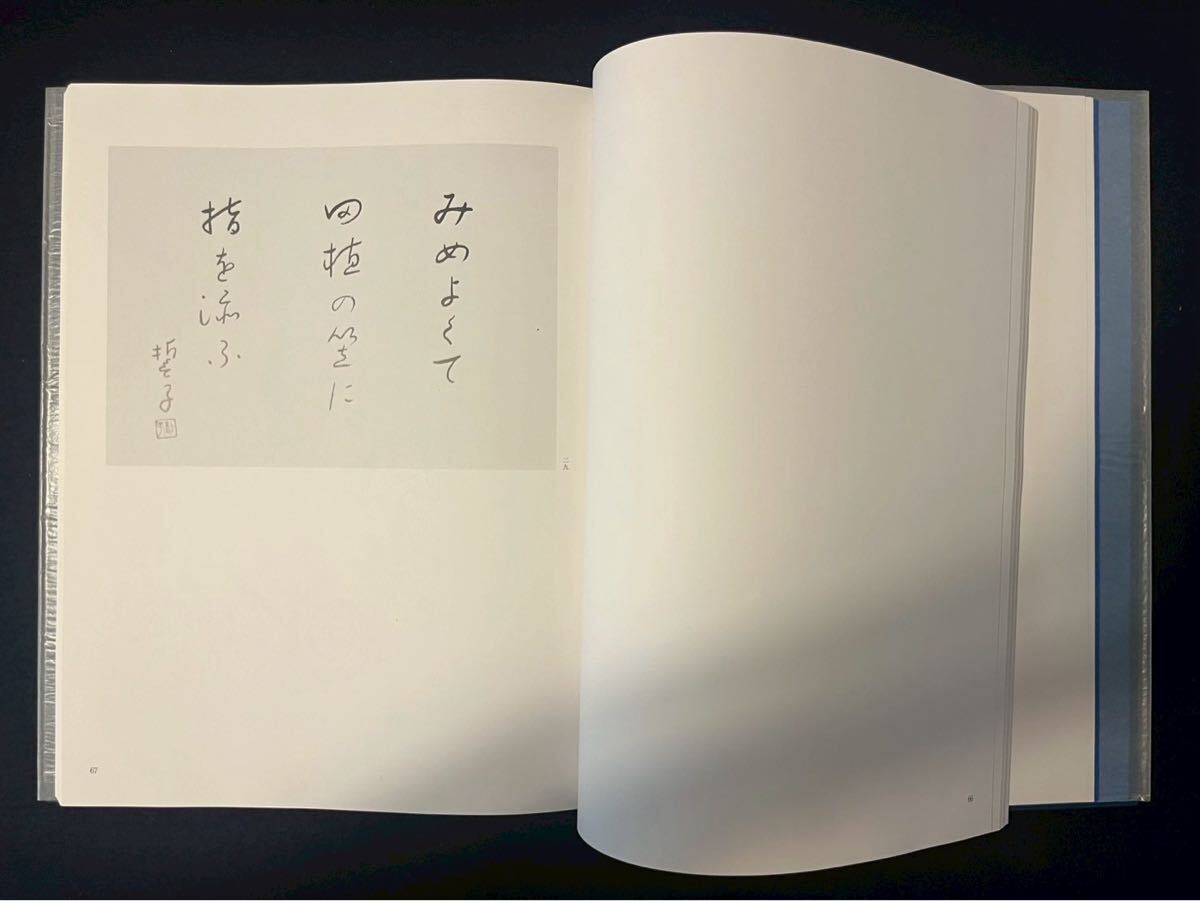 みめよくて
田植の笠に
指を添ふ
誓子
二九
67